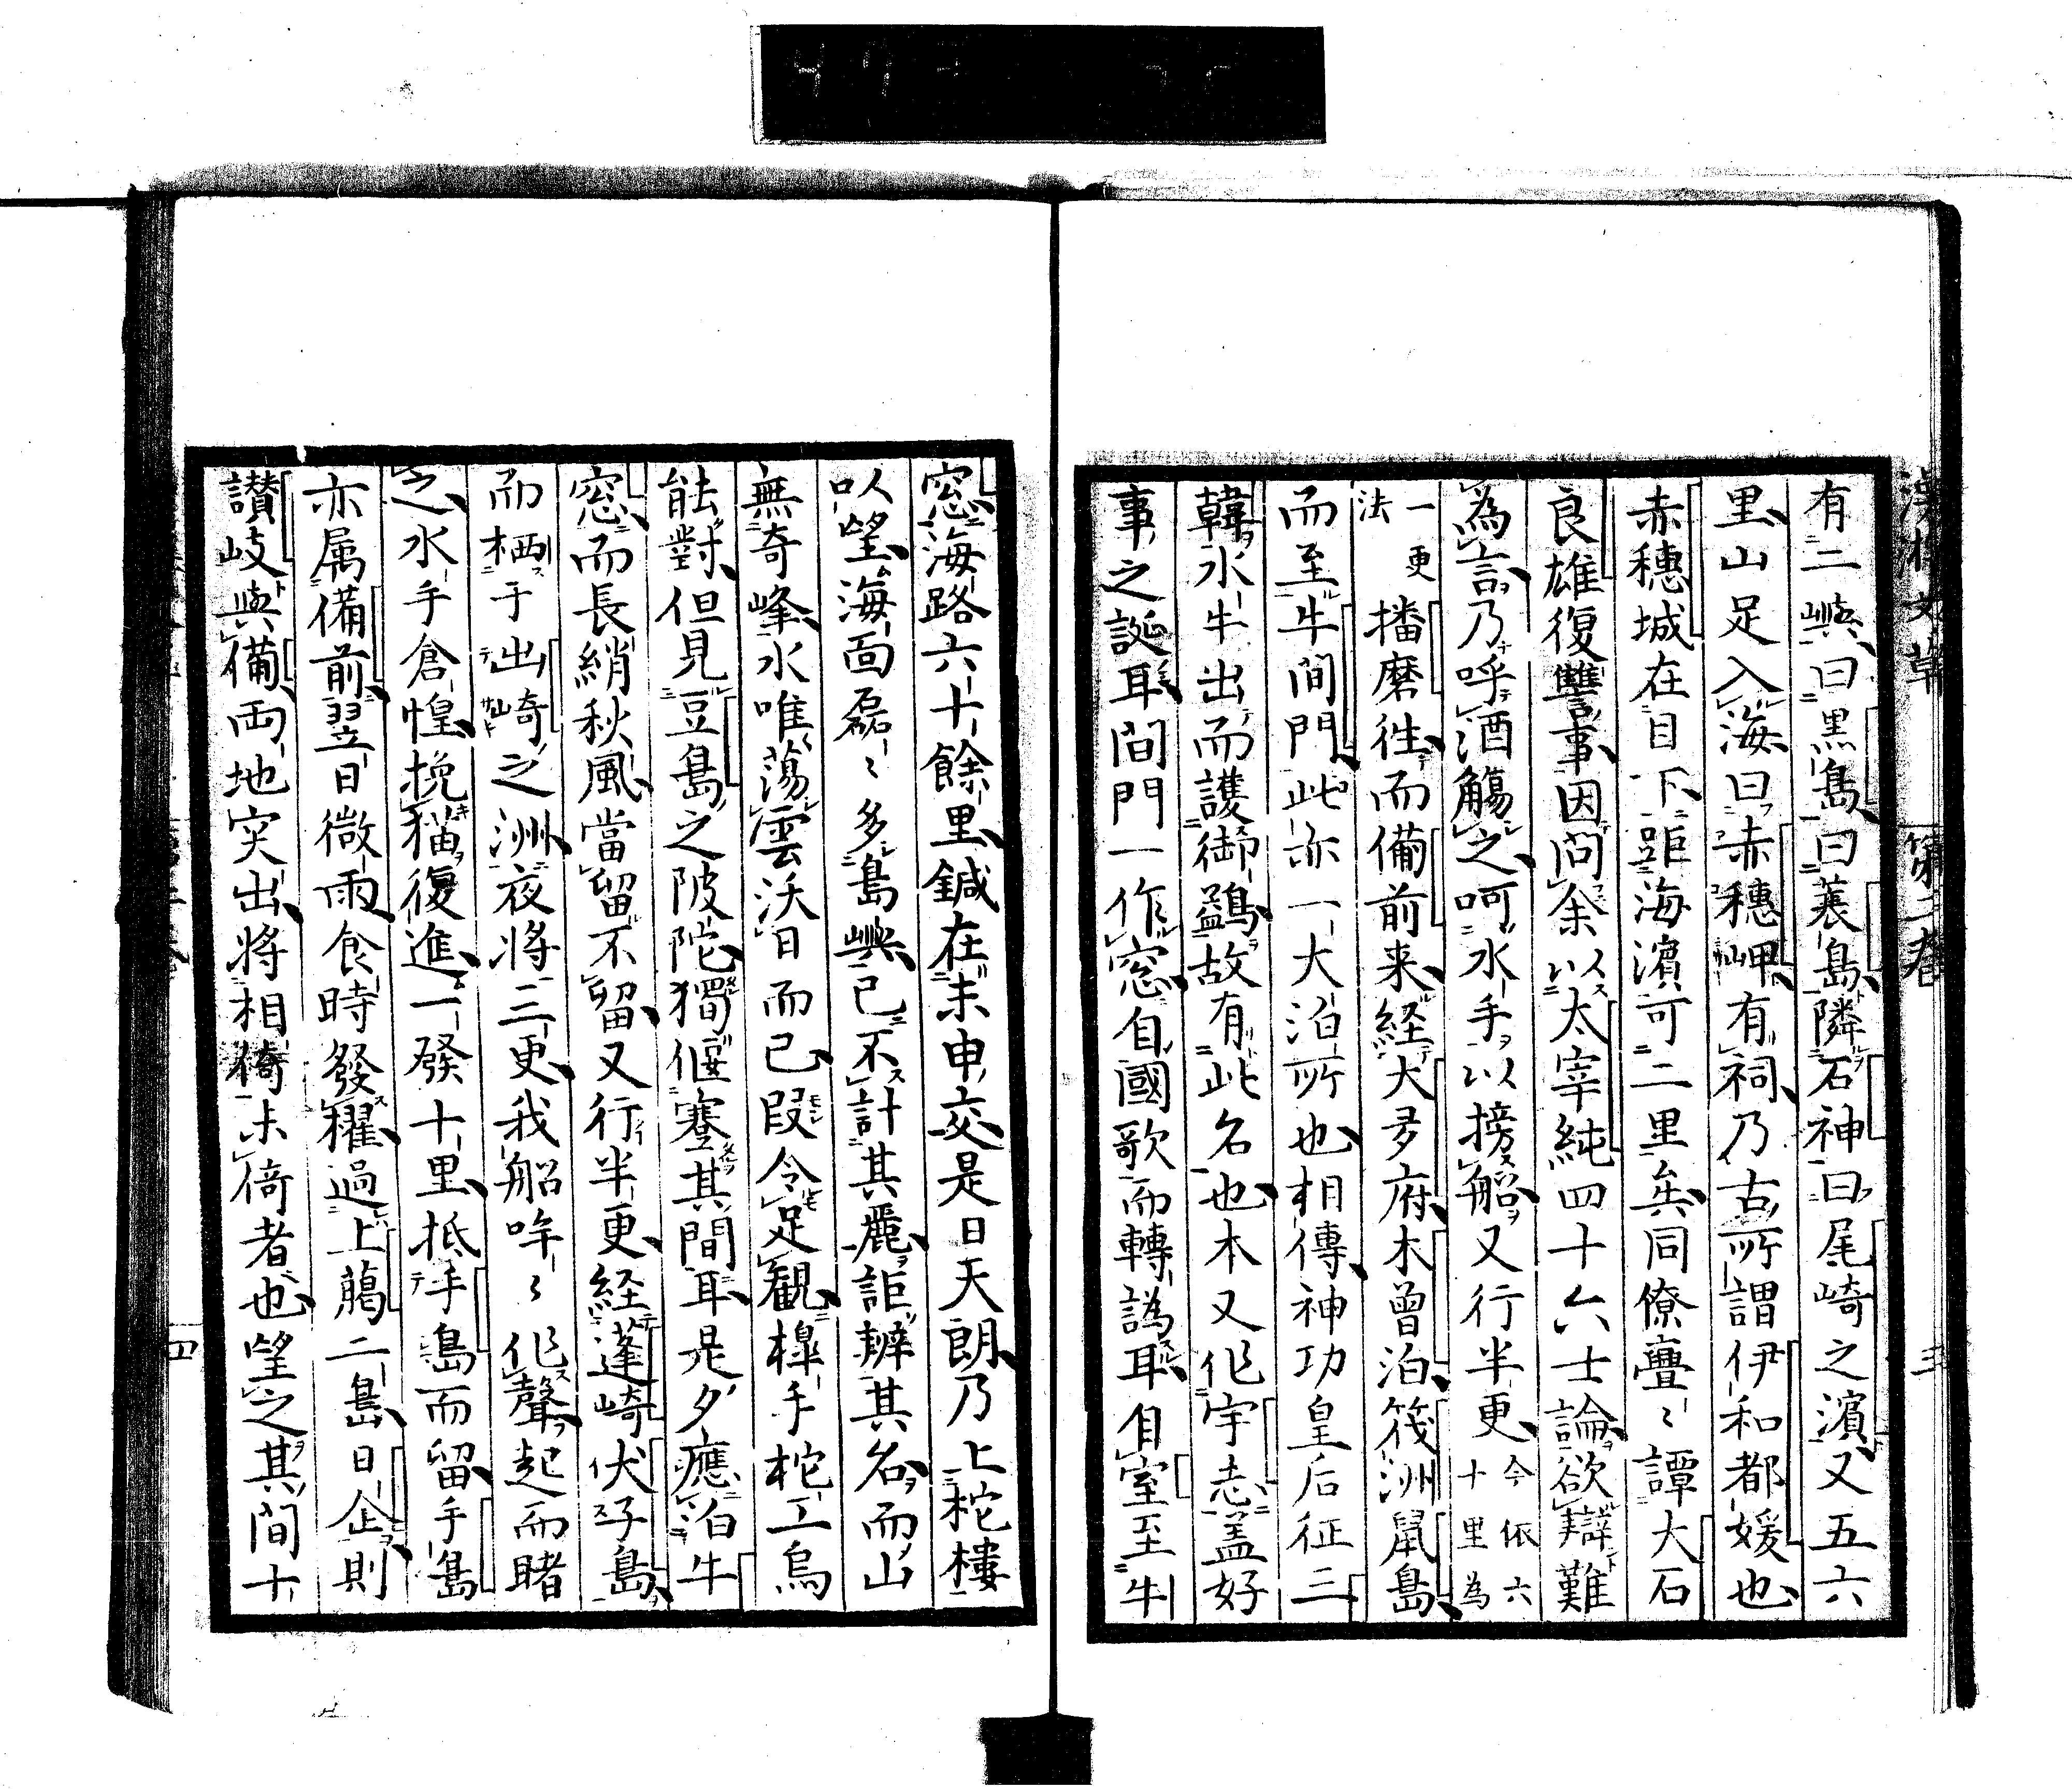 有二嶼曰黒島曰蓑島隣石神曰尾崎之濱又五六
里山足入海曰赤穗岬有祠乃古所謂伊和都媛也
赤穗城在目下距海濱可二里矣同僚亹〻譚大石
良雄復讐事因問余以太宰純四十六士論欲辯難
為言乃呼酒觴之呵水手以搒船又行半更今依六
十里為
一更
法播磨徃而備前来経大多府木曽泊筏洲鼠島
而至牛間門此亦一大泊所也相傳神功皇后征三
韓水牛出而護御鷁故有此名也木又作宇志盖好
事之誕耳間門一作窓自國歌而轉譌耳自室至牛
窓海路六十餘里鍼在未申交是日天朗乃上柁樓
以望海面磊〻多島嶼已不計其麗詎辨其名而山
無奇峰水唯蕩雲沃日而已叚令足観槔手柁工烏
能對但見豆島之陂陀獨偃蹇其間耳是夕應泊牛
窓而長綃秋風當留不留又行半更経蓬崎伏子島
而栖于出崎之洲夜将三更我船哞〻作聲起而睹
之水手倉惶挽猫復進一發十里抵手島而留手島
亦属備前翌日微雨食時發糴過上蔿二島日企則
讃岐與備両地突出将相倚未倚者也望之其間十
漢 文草 第二卷 三
四